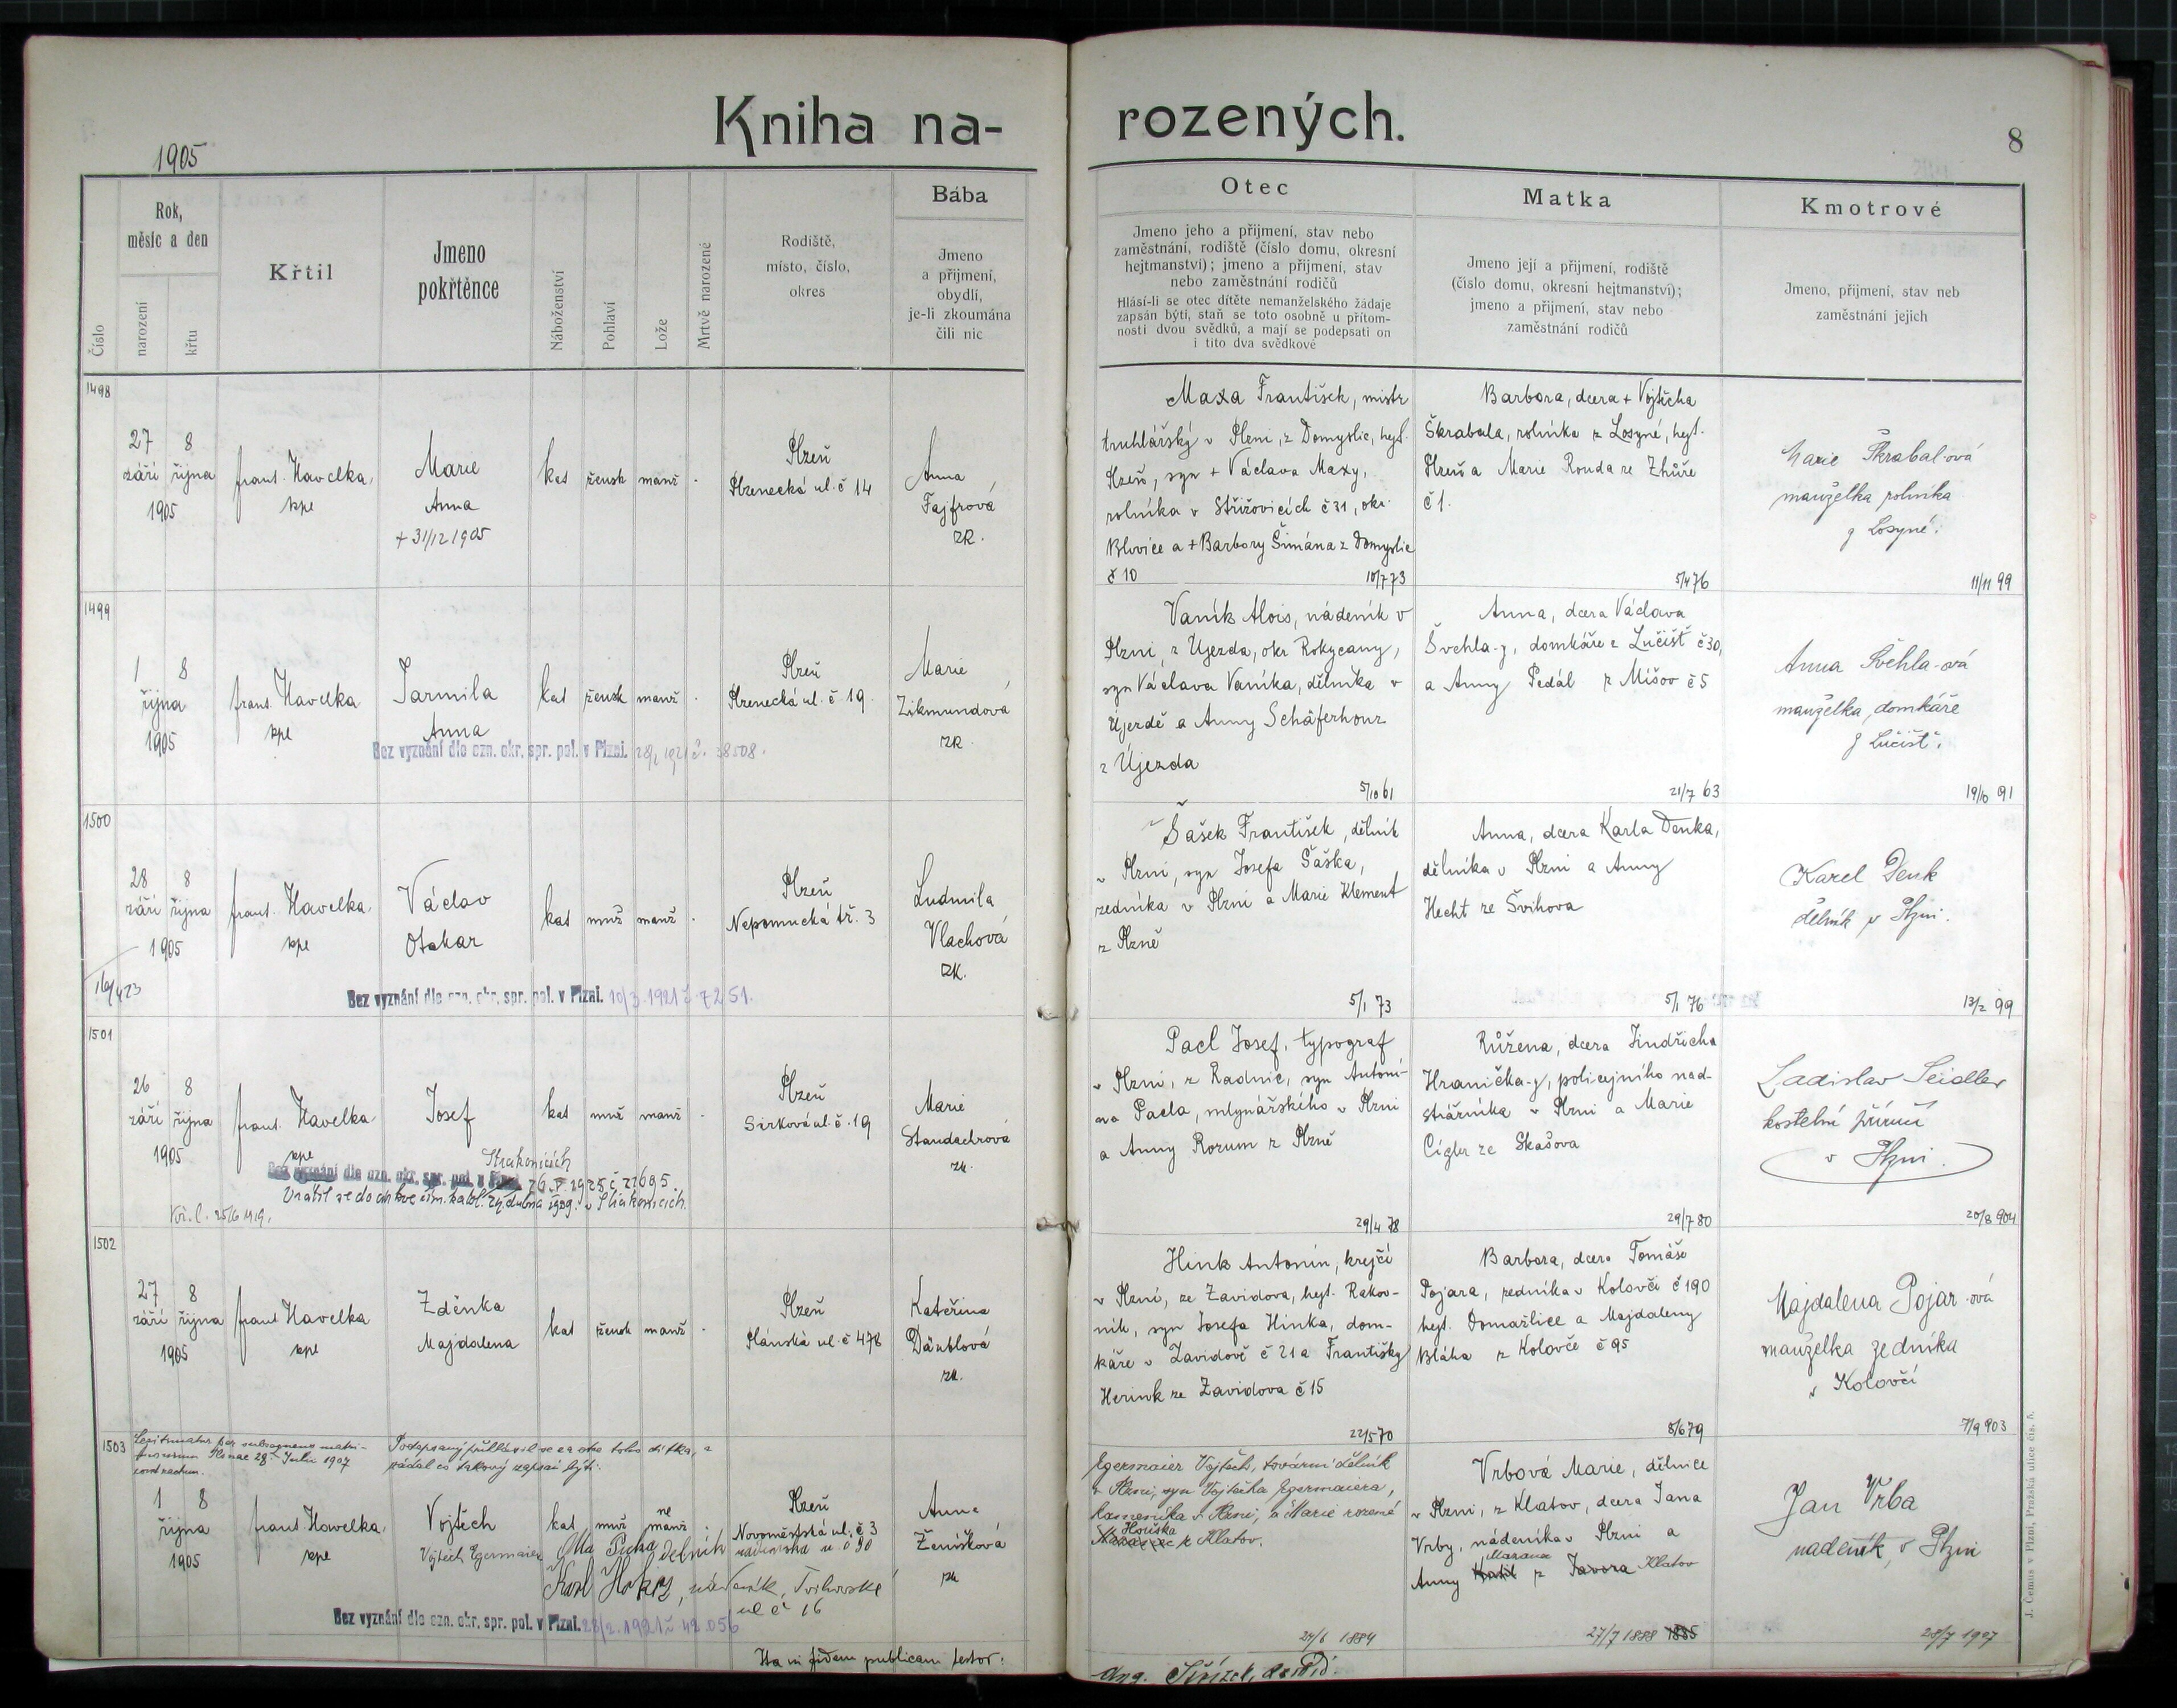 Kniha na-
rozených.
8
1905
Číslo
Rok,
měsíc a den
narození
křtu
Křtil
Jmeno
pokřtěnce
Náboženství
Pohlaví
Lože
Mrtvě narozené
Rodiště,
místo, číslo,
okres
Bába
Jmeno
a přijmení,
obydlí,
je-li zkoumána
čili nic
Otec
Jmeno jeho a přijmení, stav nebo
zaměstnání, rodiště (číslo domu, okresní
hejtmanství); jmeno a přijmení, stav
nebo zaměstnání rodičů
Hlásí-li se otec dítěte nemanželského žádaje
zapsán býti, staň se toto osobně u přítom-
nosti dvou svědků, a mají se podepsati on
i tito dva svědkové
Matka
Jmeno její a přijmení, rodiště
(číslo domu, okresní hejtmanství);
jmeno a přijmení, stav nebo
zaměstnání rodičů
Kmotrové
Jmeno, přijmení, stav neb
zaměstnání jejich
1498
27 8
září října
1905
frant. Havelka,
kpe
Marie
Anna
+ 31/12 1905
kat žensk manž
Plzeň
Plzenecká ul. č 14
Anna
Fajfrová
zk.
Maxa František, mistr
truhlářský v Plzni, z Domyslic, hejt.
Plzeň, syn + Václava Maxy,
rolníka v Střížovicích č 31, okr.
Blovice a + Barbory Šimána z Domyslic
č 10
10/7 73
Barbora, dcera + Vojtěcha
Škrabala, rolníka z Losyné, hejt.
Plzeň a Marie Rouda ze Zhůře
č 1.
5/4 76
Marie Škrabal-ová
manželka rolníka
z Losyné.
11/11 99
1499
1 8
října
1905
frant. Havelka
kpe
Jarmila
Anna
kat žensk manž
Plzeň
Plzenecká ul. č 19
Marie
Zikmundová
zk.
Bez vyznání dle ozn. okr. spr. pol. v Plzni. 28/1 1921 č. 38508.
Vaník Alois, nádeník v
Plzni, z Újezda, okr Rokycany,
syn Václava Vaníka, dělníka v
Újezdě a Anny Schäferhonz
z Újezda
5/10 61
Anna, dcera Václava
Švehla-y, domkáře z Lučišť č 30,
a Anny Pedál z Míšov č 5
21/7 63
Anna Švehla-ová
manželka domkáře
z Lučišť.
19/10 91
1500
28 8
září října
1905
16/4 23
frant. Havelka,
kpe
Václav
Otakar
kat muž manž
Plzeň
Nepomucká tř. 3
Ludmila
Vlachová
zk.
Bez vyznání dle ozn. okr. spr. pol. v Plzni. 10/3. 1921 č. 7251.
Šašek František, dělník
v Plzni, syn Josefa Šáška,
zedníka v Plzni a Marie Klement
z Plzně
5/1 73
Anna, dcera Karla Denka,
dělníka v Plzni a Anny
Hecht ze Švihova
5/1 76
Karel Denk
dělník v Plzni.
13/2 99
1501
26 8
září října
1905
frant. Havelka
kpe
Josef
kat muž manž
Plzeň
Sirková ul. č. 19
Marie
Standachrová
zk.
Strakonicích
Bez vyznání dle ozn. okr. spr. pol. v Plzni. 26. 5. 1925 č. 21695.
Vrátil se do církve řím. katol. 29. dubna 1939. v Strakonicích.
Kř. l. 25/6 1919.
Pacl Josef, typograf
v Plzni, z Radnic, syn Antoní-
na Pacla, mlynářského v Plzni
a Anny Rozum z Plzně
29/4 78
Růžena, dcera Jindřicha
Hranička-y, policejního nad-
strážníka v Plzni a Marie
Cígler ze Skašova
29/7 80
Ladislav Seidler
kostelní příručí
v Plzni.
20/8 904
1502
27 8
září října
1905
frant. Havelka
kpe
Zděnka
Majdalena
kat žensk manž
Plzeň
Plánská ul č 478
Kateřina
Däublová
zk.
Hink Antonín, krejčí
v Plzni, ze Zavidova, hejt. Rakov-
ník, syn Josefa Hinka, dom-
káře v Zavidově č 21 a Františky
Herink ze Zavidova č 15
22/5 70
Barbora, dcera Tomáše
Pojara, zedníka v Kolovči č 190
hejt. Domažlice a Majdaleny
Bláha z Kolovče č 95
8/6 79
Majdalena Pojar-ová
manželka zedníka
v Kolovči
7/9 903
1503
Legitimatus per subsequens matri-
monium Plznae 28 Julii 1907
contractum.
Podepsaný přihlásil se za otce toho dítka, a
žádal co takový zapsán býti:
1 8
října
1905
frant. Havelka,
kpe
Vojtěch
Vojtěch Egermaier
kat muž ne
manž
Plzeň
Novoměstská ul. č 3
Anna
Ženíšková
zk
Karl Hokr, nádeník, Tvihovská
ul č 16
Bez vyznání dle ozn. okr. spr. pol. v Plzni. 23/2. 1921 č 42.056
Egermaier Vojtěch, tovární dělník
v Plzni, syn Vojtěcha Egermaiera,
kameníka v Plzni, a Marie rozené
Houška
z Klatov.
24/6 1884
Vrbová Marie, dělnice
v Plzni, z Klatov, dcera Jana
Vrby, nádeníka v Plzni a
Marana
Anny z Javora Klatov
27/7 1888 1885
Jan Vrba
nádeník, v Plzni
28/7 1907
Ita in fidem publicam testor:
J. Čermus v Plzni, Pražská ulice čís. 5.